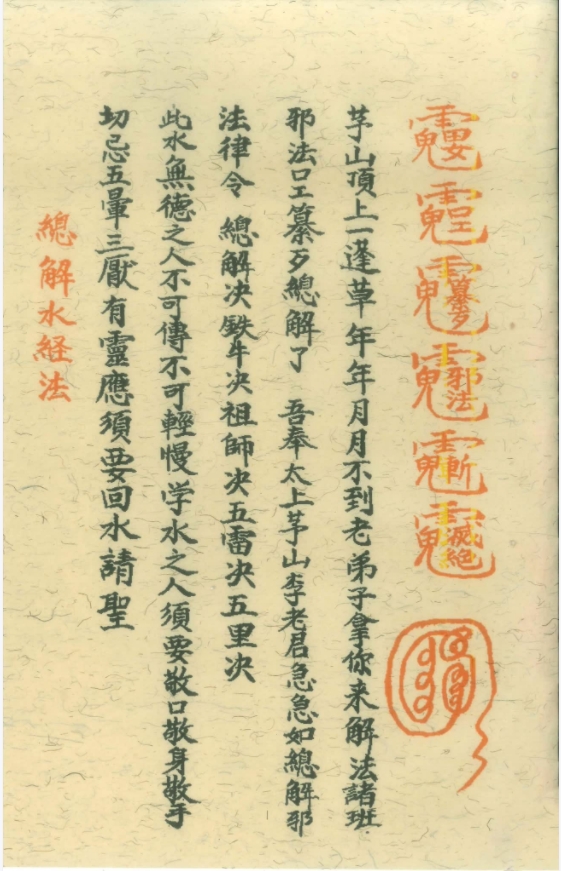 纂歹 邪法 斬 滅絕
茅山頂上一蓬草年年月月不到老弟子拿你来解法諸班
邪法口工纂歹總解了 吾奉太上茅山李老君急急如總解邪
法律令 總解决鉄牛决祖師决五雷决五里决
此水無德之人不可傳不可輕慢学水之人須要敬口敬身敬手
切忌五暈三厭有靈應須要回水請聖
總解水経法